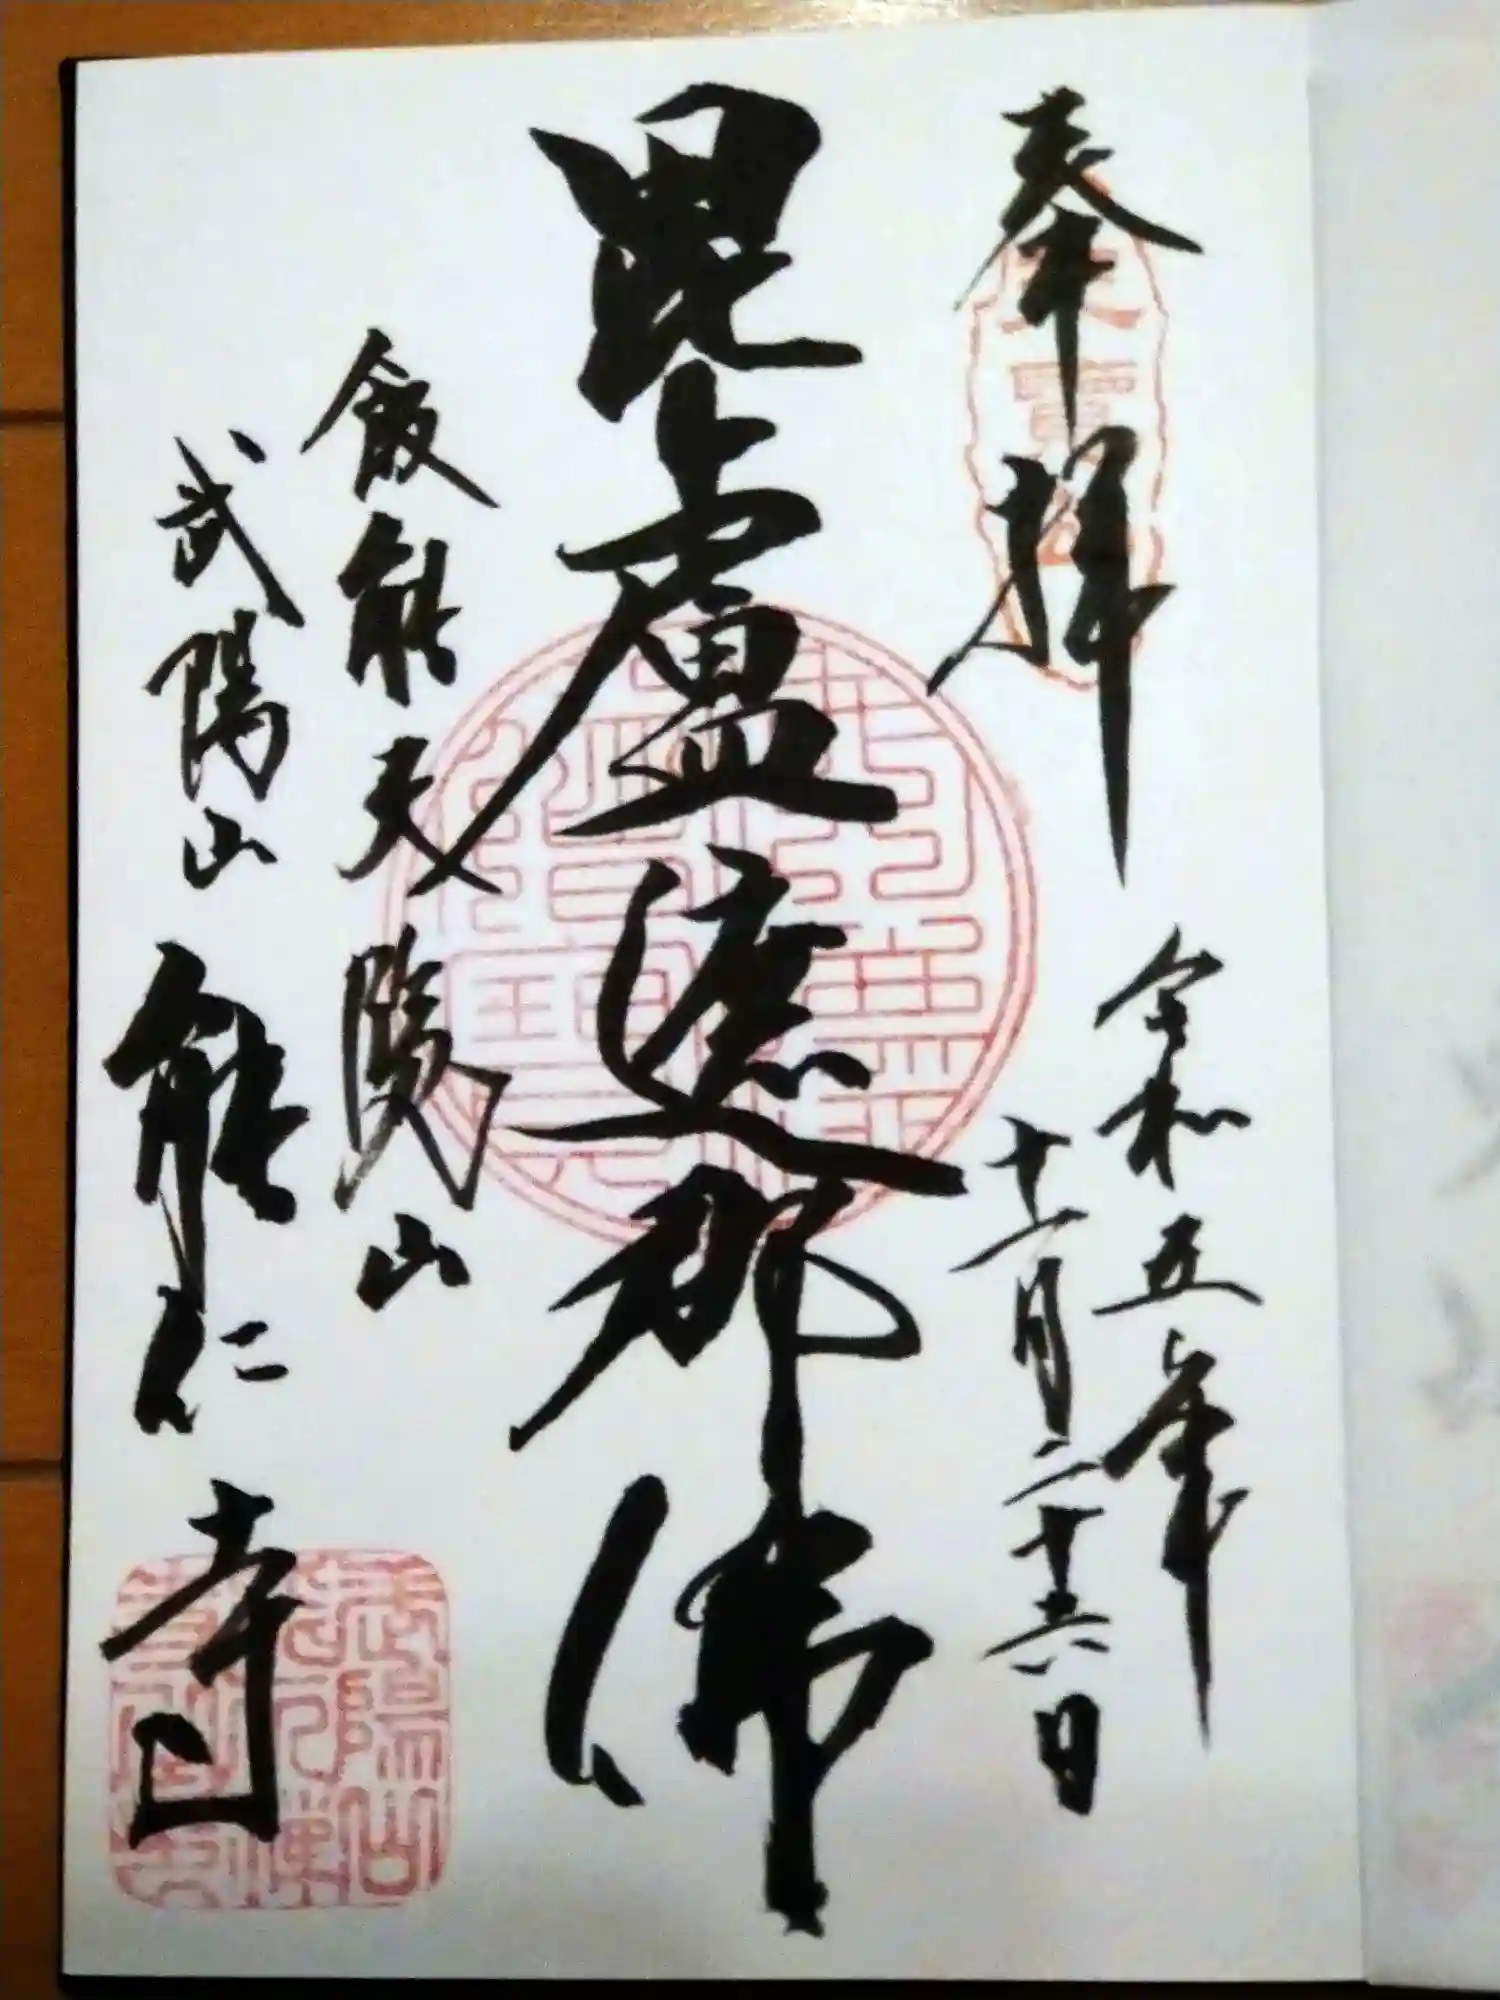 奉拝
令和五年
十一月二十六日
毘盧遮那佛
飯能天覧山
武陽山 能仁寺